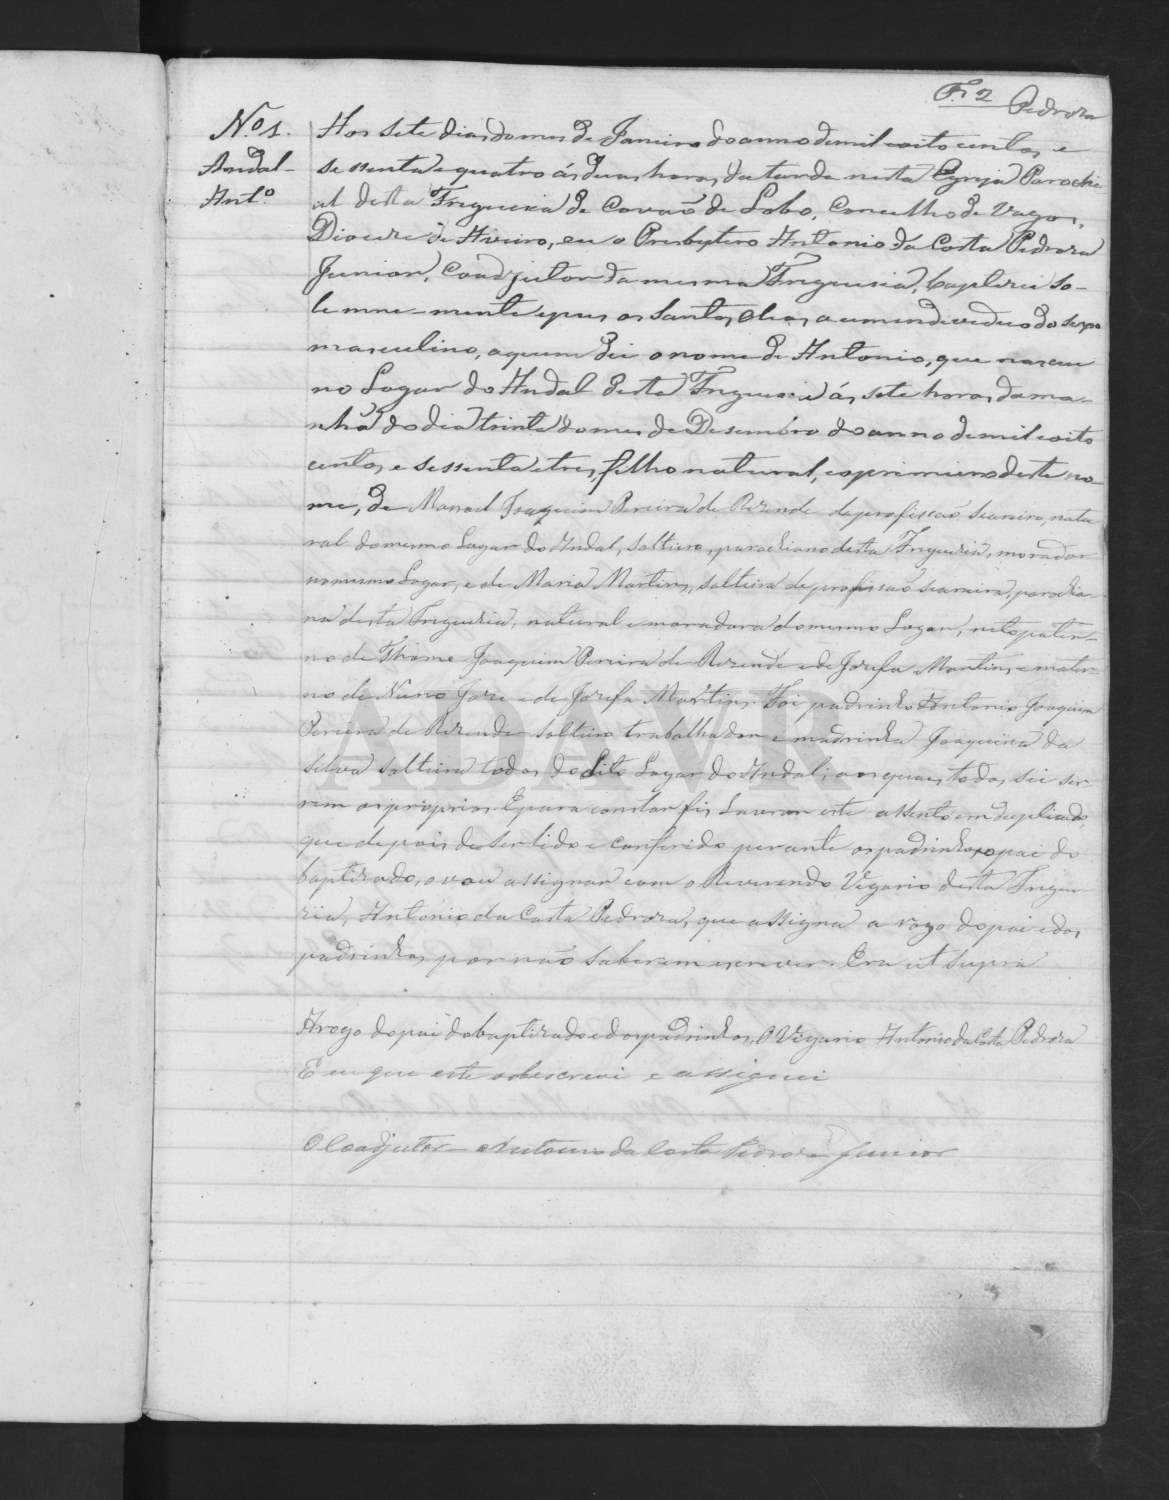 Fl 2 Pedroza
Nº 1.
Andal -
Antº
Aos sete dias do mes de Janeiro do anno de mil oito centos e
sessenta e quatro ás duas horas da tarde nesta Egreja Parochi-
al desta Freguezia de Covaõ de Lobo, Concelho de Vagos,
Diocese de Aveiro, eu o Presbytero Antonio da Costa Pedroza
Junior, Coadjutor da mesma Freguezia, baptizei so-
lemne-mente e pus os santos oleos a um endeveduo do sexo
masculino, a quem dei o nome de Antonio, que nasceu
no Logar do Andal desta Freguezia ás sete horas da ma-
nhã do dia trinta do mes de Desembro do anno de mil oito
centos e sessenta e tres, filho natural, e o primeiro deste no-
me, de Manoel Joaquim Pereira de Rezende de profissaõ seareiro, natu
ral do mesmo Logar do Andal, solteiro, parochiano desta Freguezia, morador
no mesmo Logar, e de Maria Martins, solteira de profissaõ seareira, parochia-
na desta Freguezia, natural e moradora do mesmo Logar, neto pater-
no de Thome Joaquim Pereira de Rezende e de Jozefa Martins, e mater-
no de Nuno Joze e de Jozefa Martins. Foi padrinho Antonio Joaquim
Pereira de Rezende solteiro trabalhador e madrinha Joaquina da
Silva solteira todos do dito Logar do Andal; os quaes todos sei se-
rem os proprios. E para constar fis lavrar este assento em duplicado,
que depois de ser lido e conferido perante os padrinhos e o pai do
baptizado, o vou assignar com o Reverendo Vigario desta Fregue
zia, Antonio da Costa Pedroza, que assigna a rogo do pai e dos
padrinhos por naõ saberem escrever. Era ut supra
A rogo do pai do baptizado e dos padrinhos, O Vigario Antonio da Costa Pedroza
E eu que este sobescrevi e assignei
O Coadjutor - Antonio da Costa Pedroza Junior
ADAVR